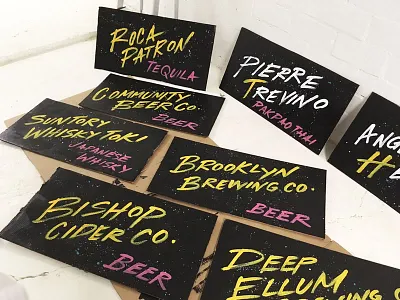 ROCA
PATRON
TEQUILA
PIERRE
TREVINO
PAKPAO THAI
COMMUNITY
BEER CO.
BEER
SUNTORY
WHISKY TOKI
JAPANESE
WHISKY
BROOKLYN
BREWING CO.
BEER
BISHOP
CIDER CO.
BEER
DEEP
ELLUM